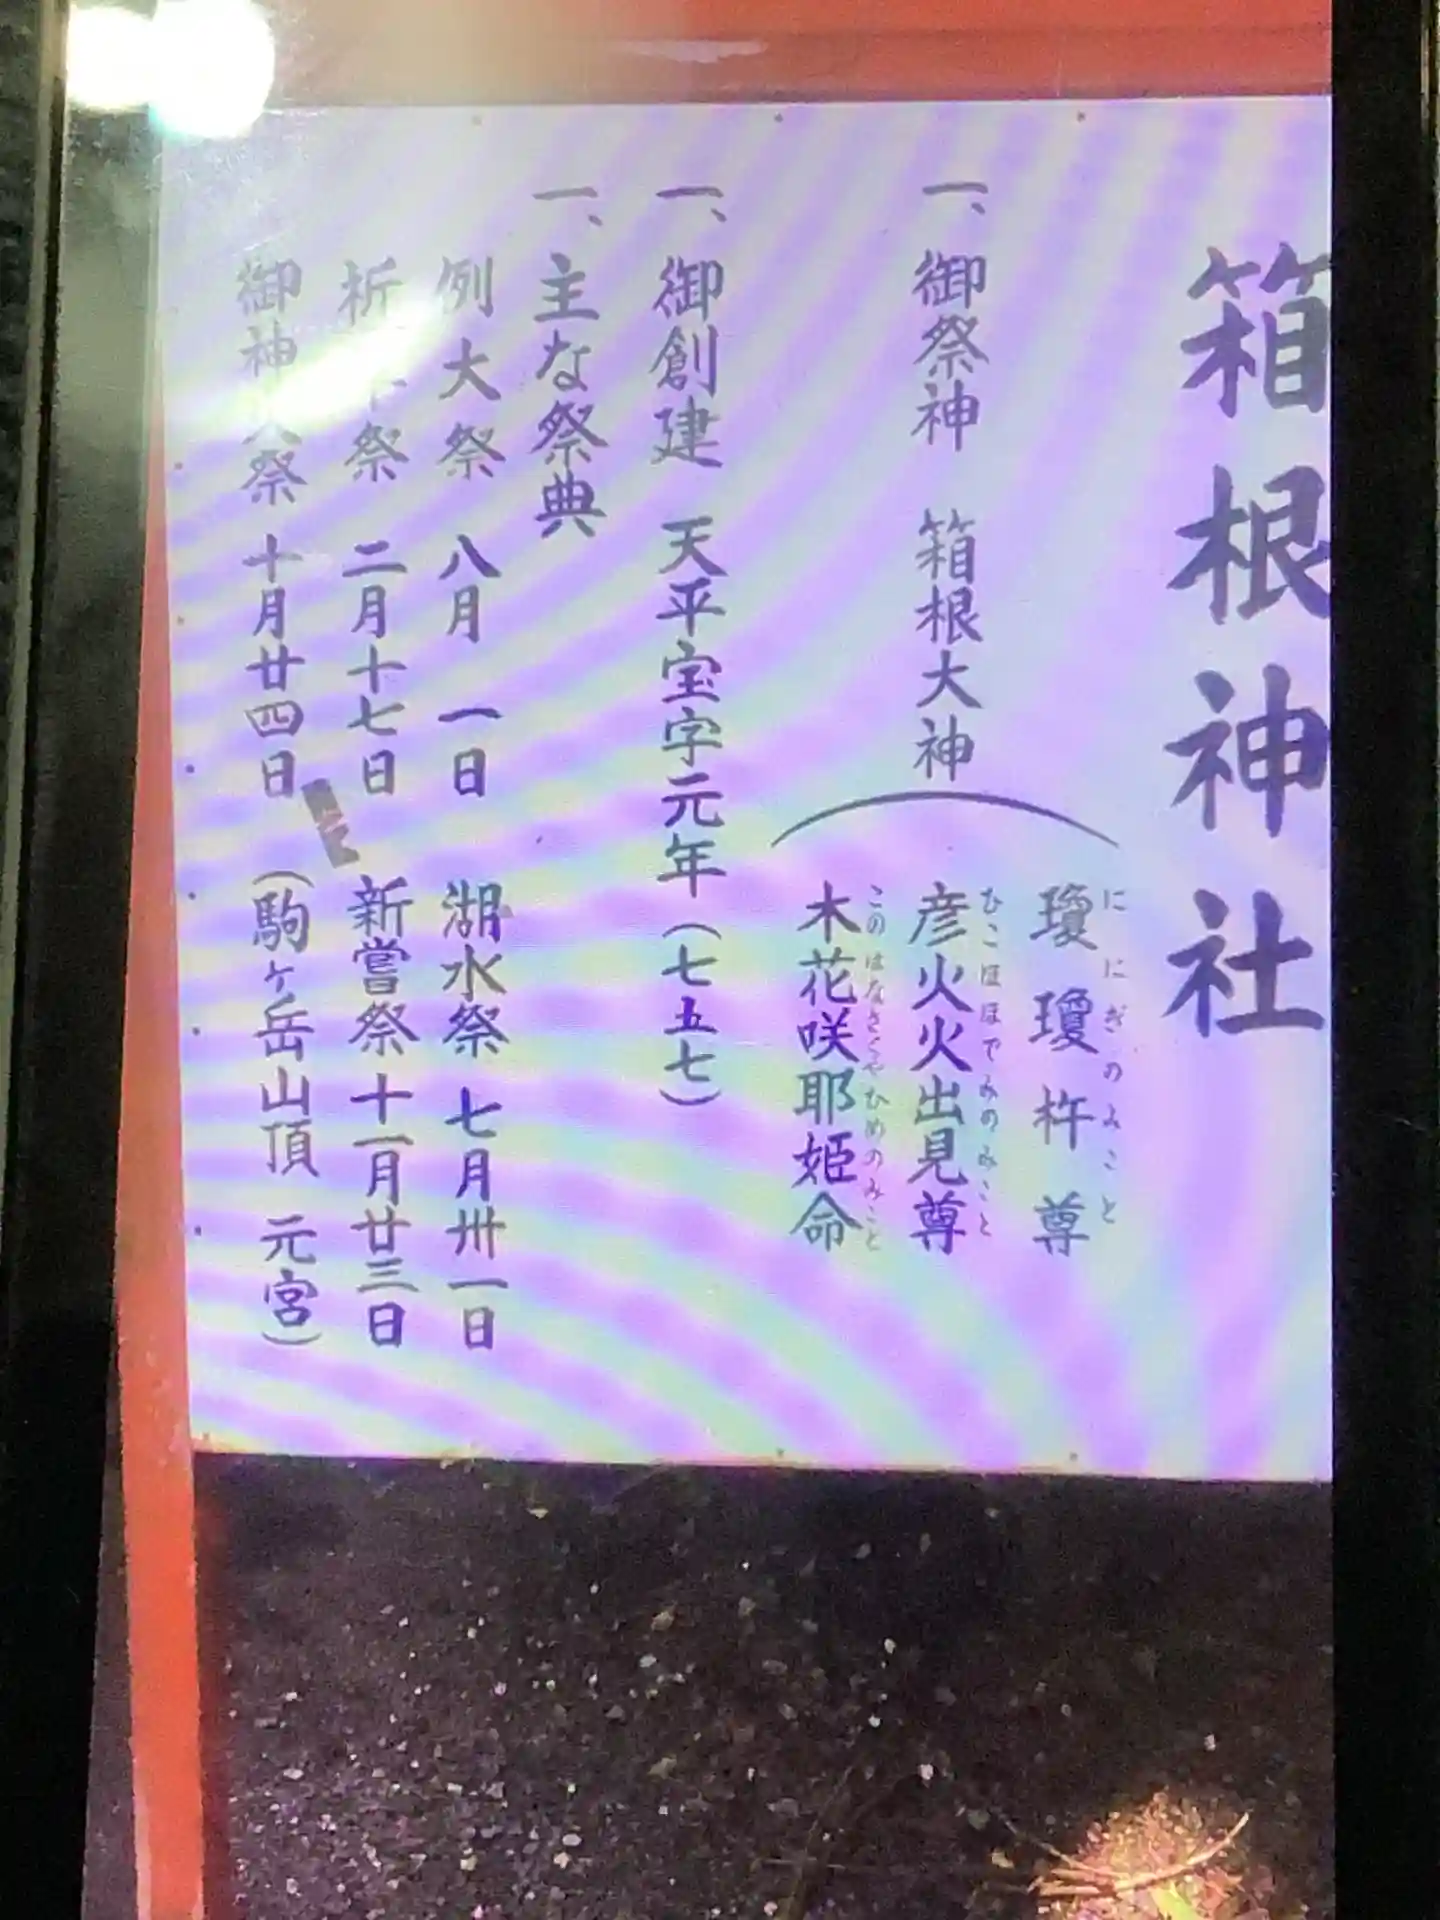 箱根神社
一、御祭神 箱根大神
ににぎのみこと
瓊瓊杵尊
ひこほほでみのみこと
彦火火出見尊
このはなさくやひめのみこと
木花咲耶姫命
一、御創建 天平宝字元年(七五七)
一、主な祭典
例大祭 八月一日 湖水祭 七月卅一日
祈 祭 二月十七日 新嘗祭 十一月廿三日
御神火祭 十月廿四日 (駒ヶ岳山頂 元宮)